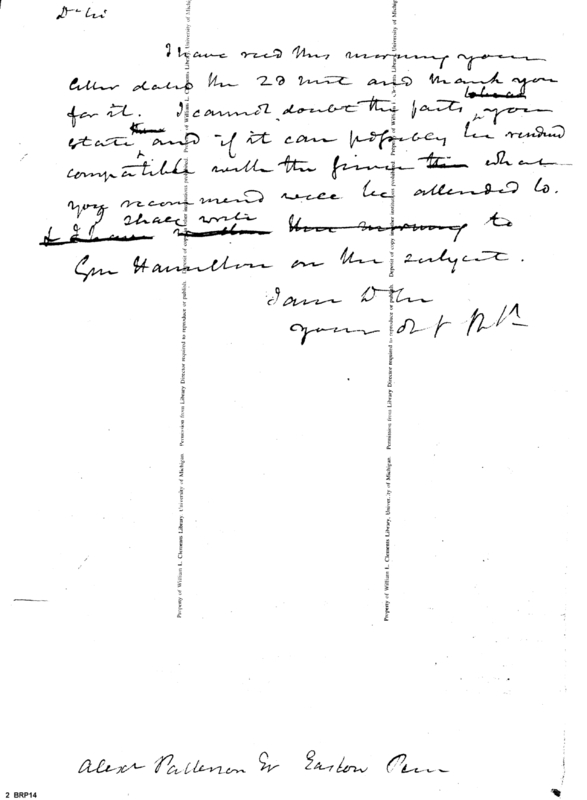 Dr Sir
I have read this morning your
letter dated the 23 inst and thank you
for it. I cannot doubt the facts you
state and if it can possibly be rendered
compatible with the what
you recommend will be attended to.
I shall write to
Gen Hamilton on the subject.
I am Dr Sir
your obt
Property of William L. Clements Library, University of Michigan. Permission from Library Director required to reproduce or publish. Deposit of copy in other institutions prohibited.
Property of William L. Clements Library, University of Michigan. Permission from Library Director required to reproduce or publish. Deposit of copy in other institutions prohibited.
Alexr Patterson Esr Easton Penn
2 BRP14